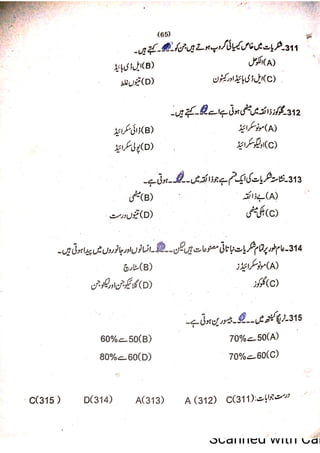 (65)
311- شکریات میں خاص کیمیائی گروپ ہوتے ہیں جن کو کہتے ہیں۔
(A) الکوحل (B) ایل ڈی ہائیڈ
(C) ایل ڈی ہائیڈ اور کیٹون (D) تینوں غلط
312- گلوکوز ذائقہ میں میٹھی ہوتی ہے اسے کہتے ہیں۔
(A) مونوسکرائیڈ (B) ڈائی سکرائیڈ
(C) اولیگوسکرائیڈ (D) پولی سکرائیڈ
313- نشاستہ شکریات کی ایک قسم ہے جو ذائقہ میں ہوتی ہے۔
(A) بے ذائقہ (B) میٹھی
(C) پھیکی میٹھی (D) تینوں درست
314- عام طور پر تمام شکریات نباتاتی مصنوعات ہیں لیکن انسانوں اور جانوروں میں پیدا ہوتی ہیں۔
(A) مونوسکرائیڈز (B) سٹارچ
(C) گلوکوز (D) گلائیکوجن اور لیکٹوجن
315- میں ہوتی ہے۔
(A) 50 سے 70% (B) 50 سے 60%
(C) 60 سے 70% (D) 60 سے 80%
درست جوابات: C(311) A (312) A(313) D(314) C(315)
Scanned with Ca